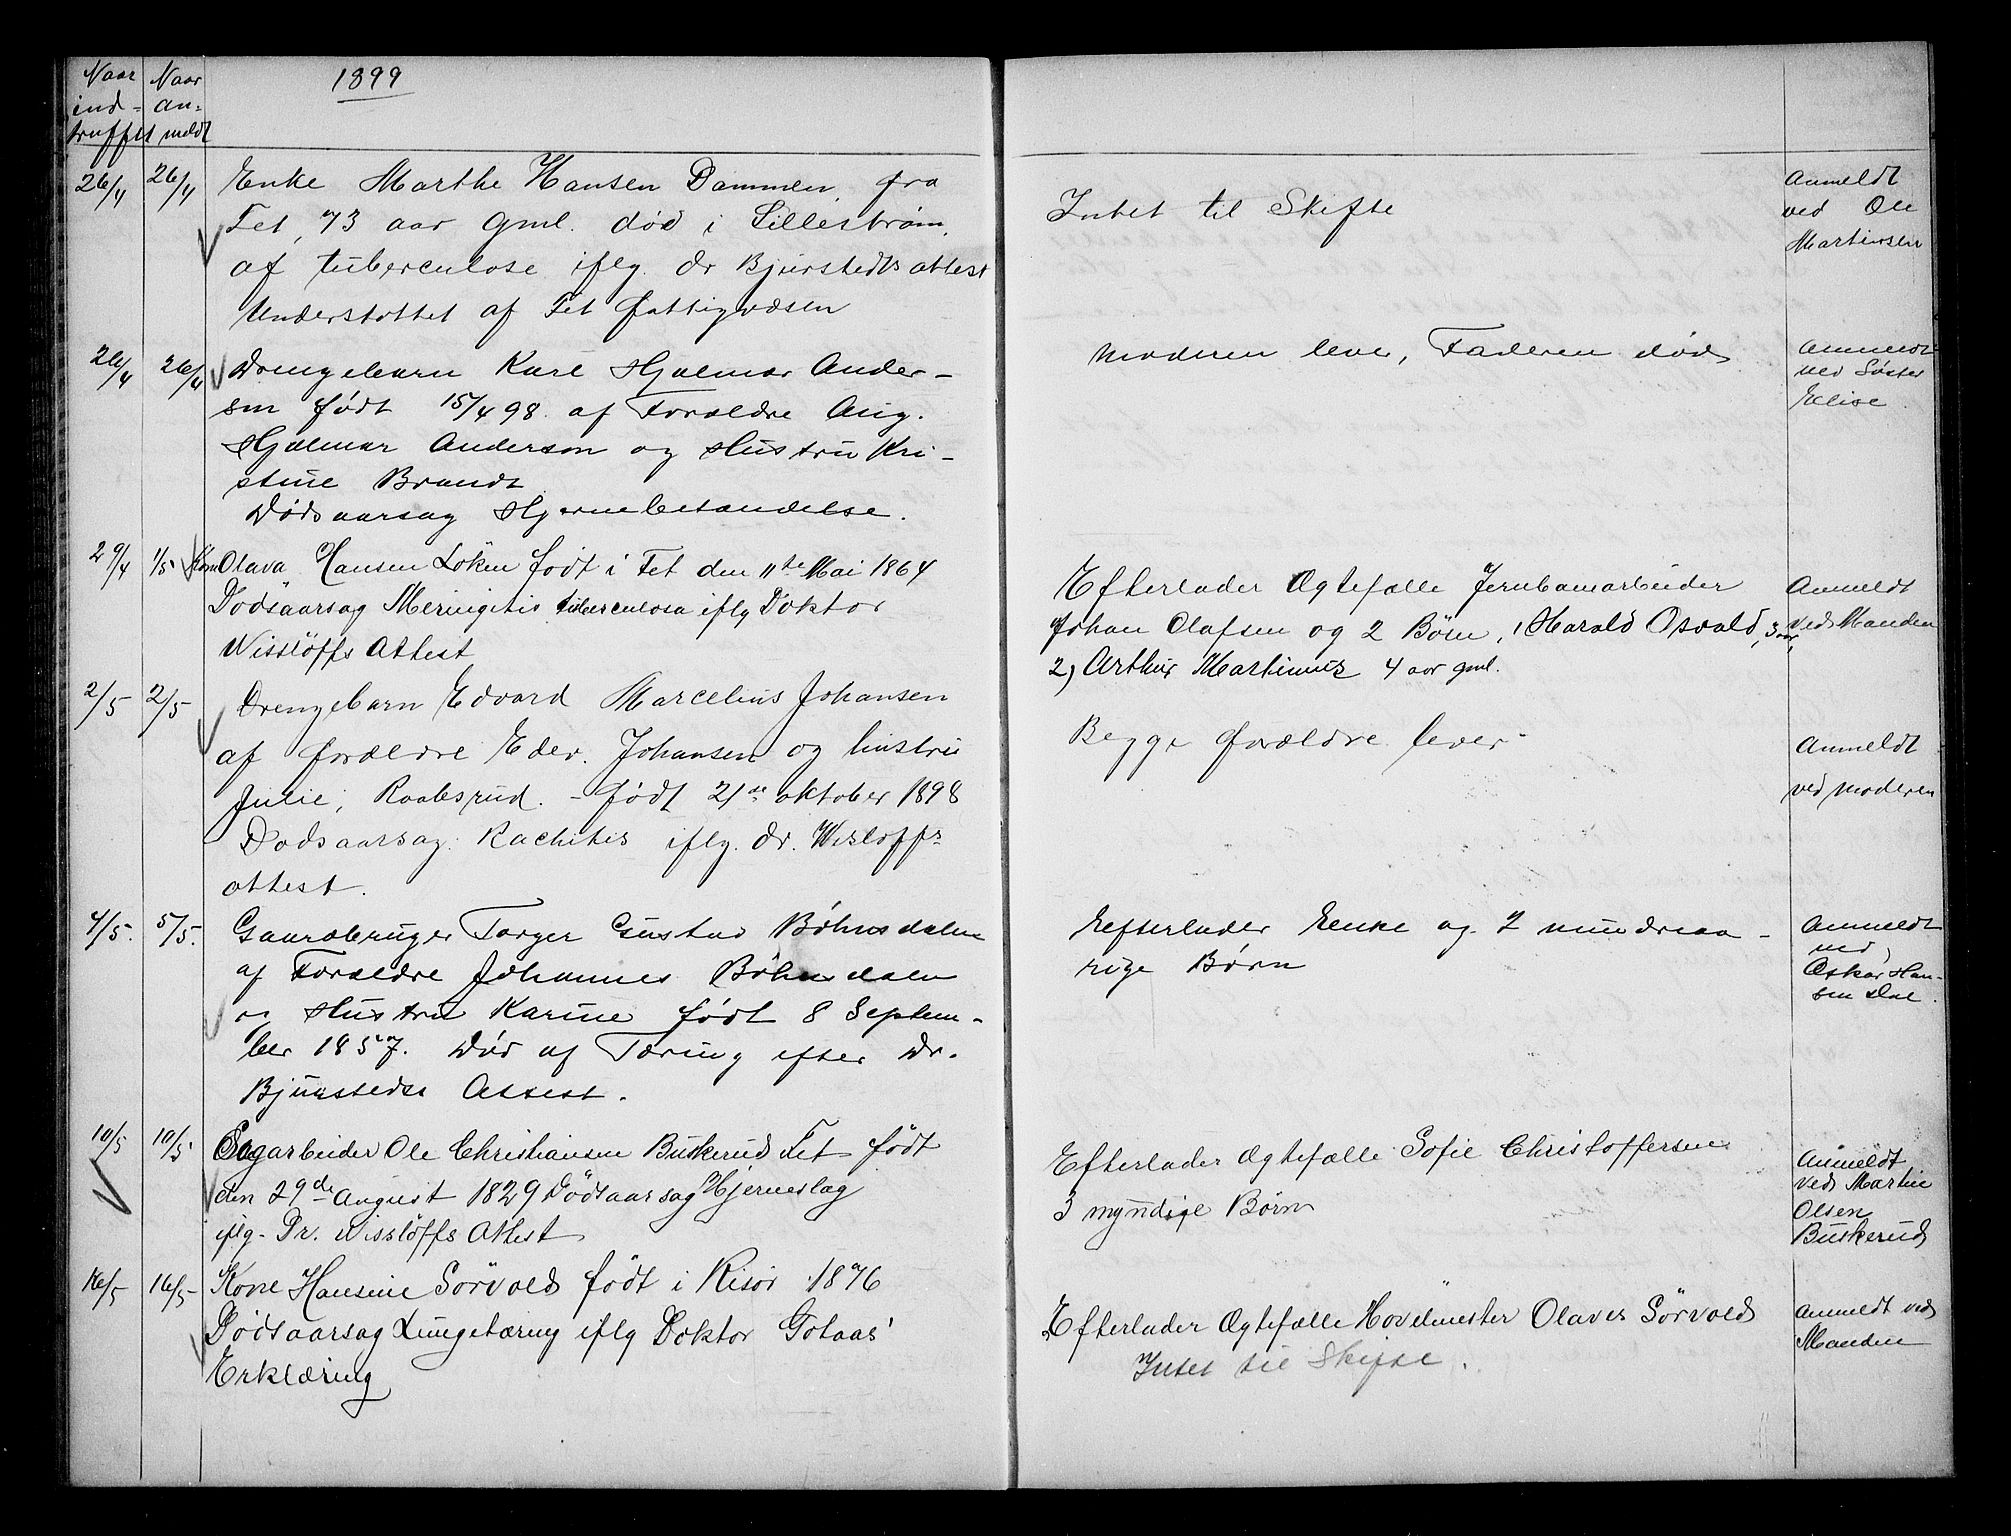 Naar Naar
ind- an-
truffet meldt
1899
26/4 26/4 Enke Marthe Hansen Dammen fra
Fet, 73 aar gml. død i Lillestrøm
af tuberculose iflg. dr Bjurstedts attest
Understøttet af Fet fattigvæsen
Intet til Skifte
Anmeldt
ved Ole
Martinsen
26/4 26/4 Drengebarn Karl Hjalmar Ander-
sen født 15/4 98 af Forældre Aug.
Hjalmar Anderson og Hustru Kri-
stine Brandt
Dødsaarsag Hjernebetændelse.
Moderen lever, Faderen død
Anmeldt
ved Søster
Elise
29/4 1/5 Kone Olava Hansen Løken født i Fet den 11te Mai 1864
Dødsaarsag Meningitis tuberculosa iflg Doktor
Wisslöffs Attest
Efterlader Ægtefælle Jernbanearbeider
Johan Olafsen og 2 Børn, 1 Harald Osvald, 3 aar,
2) Arthur Martinius 4 aar gml.
Anmeldt
ved Manden
2/5 2/5 Drengebarn Edvard Marcelius Johansen
af forældre Edv. Johansen og hustru
Julie, Raabsrud. - født 21de oktober 1898
Dødsaarsag: Rachitis iflg. dr. Wisløffs
attest.
Begge forældre lever
Anmeldt
ved moderen
4/5. 5/5. Gaardbruger Torger Gustav Bøhnsdalen
af Forældre Johannes Bøhnsdalen
og Hustru Karine født 8 Septem-
ber 1857. Død af Tæring efter Dr.
Bjurstedts Attest.
Efterlader Enke og 2 mindreaa-
rige Børn
Anmeldt
ved
Oskar Han-
sen Dal.
10/5 10/5 Sagarbeider Ole Christiansen Buskerud Fet født
den 29de August 1829 Dødsaarsag Hjerneslag
iflg. Dr. Wisslöffs Attest
Efterlader Ægtefælle Sofie Christoffersen
3 myndige Børn
Anmeldt
ved Martin
Olsen
Buskerud
16/5 16/5 Kone Hansine Sörvold født i Risör 1876
Dødsaarsag Lungetæring iflg Doktor Gotaas'
Erklæring
Efterlader Ægtefælle Hovelmester Olaves Sörvold
Intet til Skifte.
Anmeldt ved
Manden